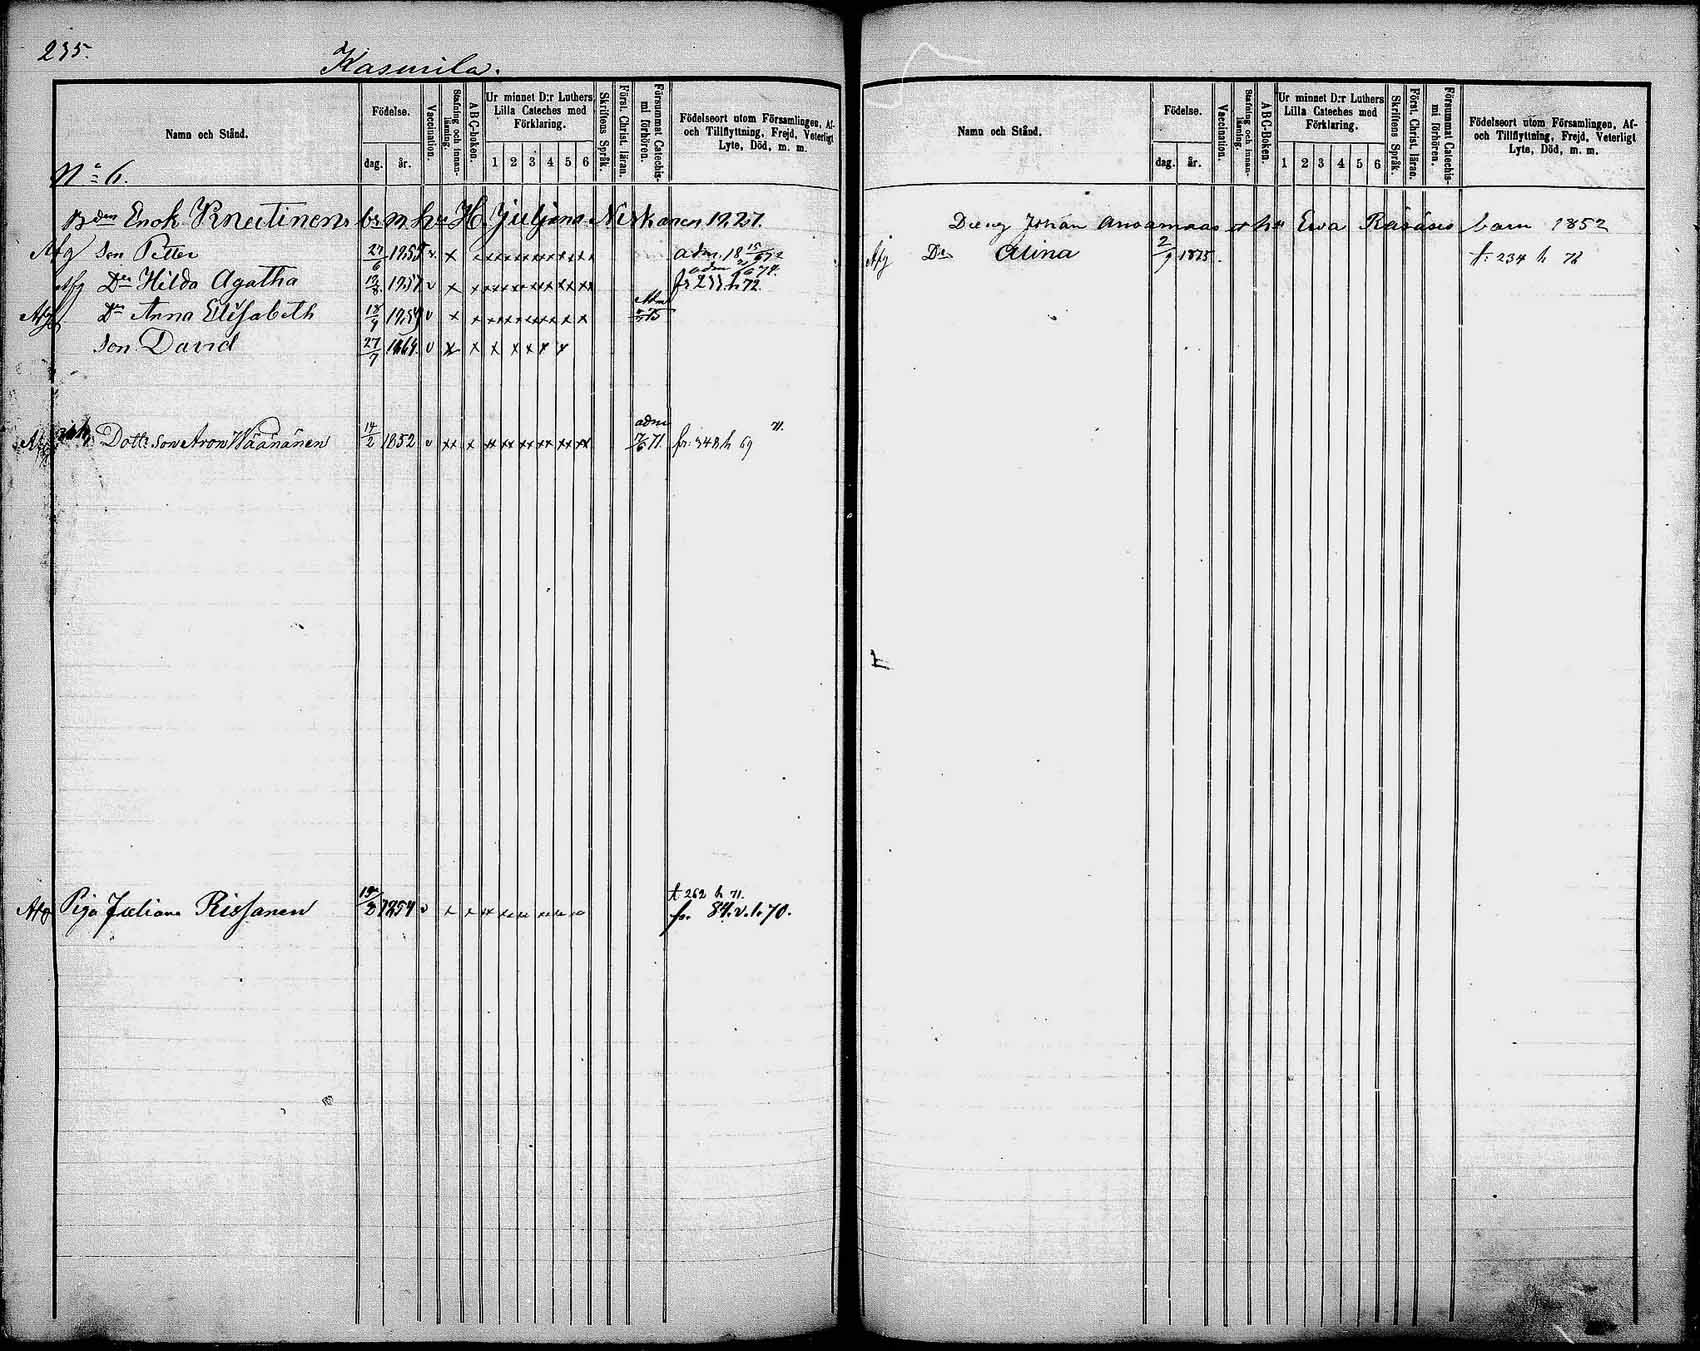 235.
Kasurila.
Namn och Stånd.
Födelse.
dag.
år.
Vaccination.
Stafning och innan-läsning.
ABC-boken.
Ur minnet D:r Luthers Lilla Cateches med Förklaring.
1 2 3 4 5 6
Skriftens Språk.
Först. Christ. läran.
Försummat Catechis-mi förhören.
Födelseort utom Församlingen, Af-
och Tillflyttning, Frejd, Veterligt
Lyte, Död, m. m.
No 6.
Bdn Enok Knuutinens br m hu H. Juljana Niskanen 1827.
Afg Son Petter 27/6 1855 v x
Afg Dr Hilda Agatha 13/8 1857 v x fr 255 h 72.
Afg Dr Anna Elisabeth 18/9 1859 v x
Son David 27/7 1864 v x x x x x x x
Afg Dott: Son Aron Wäänänen 14/2 1852 v xx x adm 71. fr: 348 h 69
71.
t 262 h 71.
Afg Piga Juliana Rissanen 1854 v fr 84. v. h. 70.
Namn och Stånd.
Födelse.
dag.
år.
Vaccination.
Stafning och innan-läsning.
ABC-Boken.
Ur minnet D:r Luthers Lilla Cateches med Förklaring.
1 2 3 4 5 6
Skriftens Språk.
Först. Christ. läran.
Försummat Catechis-mi förhören.
Födelseort utom Församlingen, Af-
och Tillflyttning, Frejd, Veterligt
Lyte, Död, m. m.
Johan Ansamaas o hu Ewa Räsäses barn 1852
Afg Dr Alina 2/9 1875 t: 234 h 78